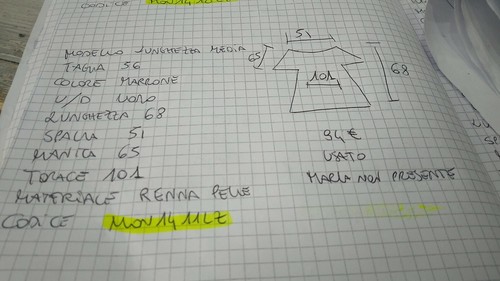 CODICE
MODELLO LUNGHEZZA MEDIA
TAGLIA 56
COLORE MARRONE
U/D UOMO
LUNGHEZZA 68
SPALLA 51
MANICA 65
TORACE 101
MATERIALE RENNA PELLE
CODICE MON1411LZ
51
65
101
68
94€
USATO
MARCA NON PRESENTE